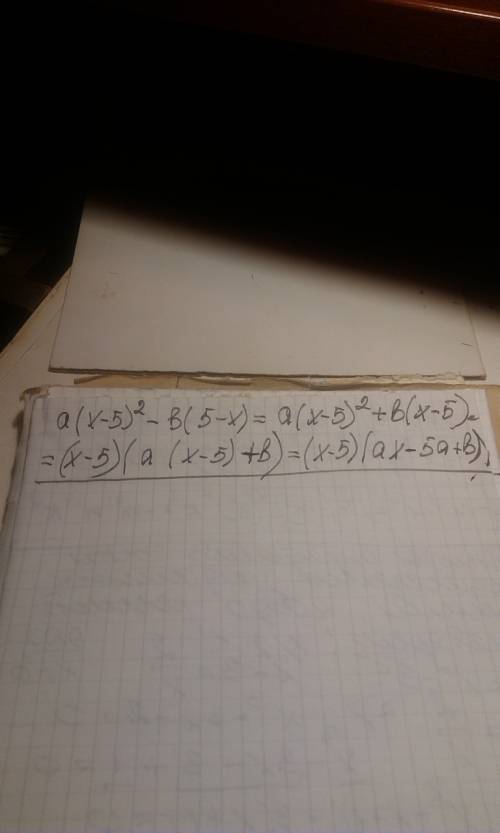 a(x-5)² - в(5-x) = a(x-5)² + в(x-5) =
= (x-5)(a (x-5) + в) = (x-5)(ax - 5a + в).